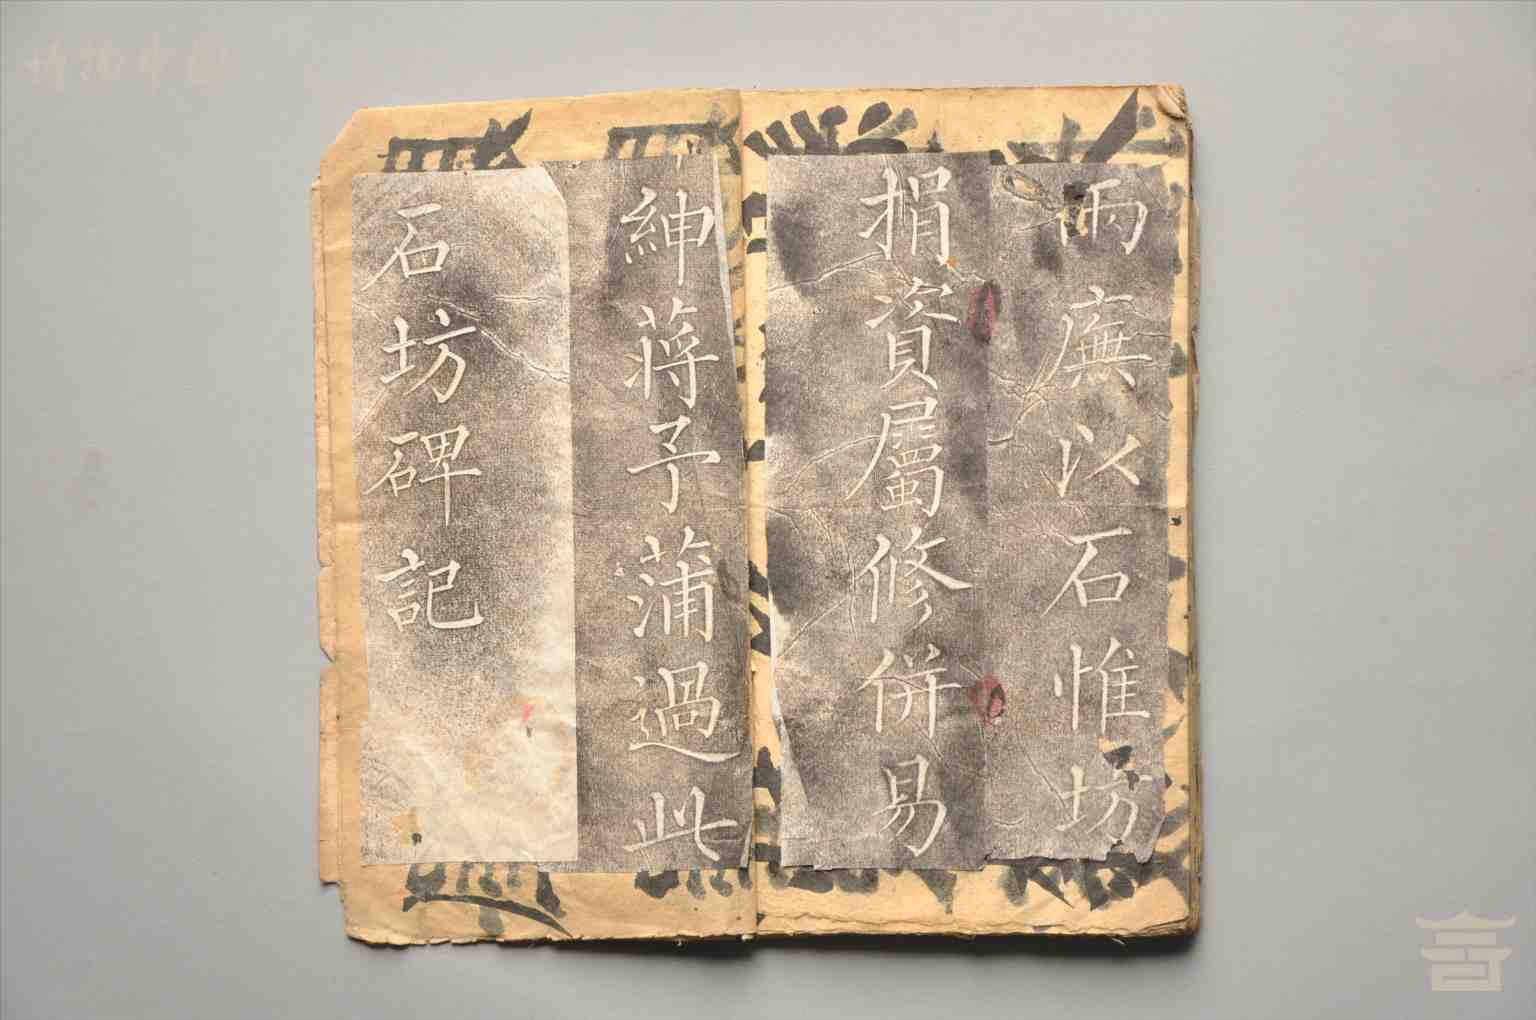 雨廡以石惟坊
捐資屬修併易
紳蔣予蒲過此
石坊碑記